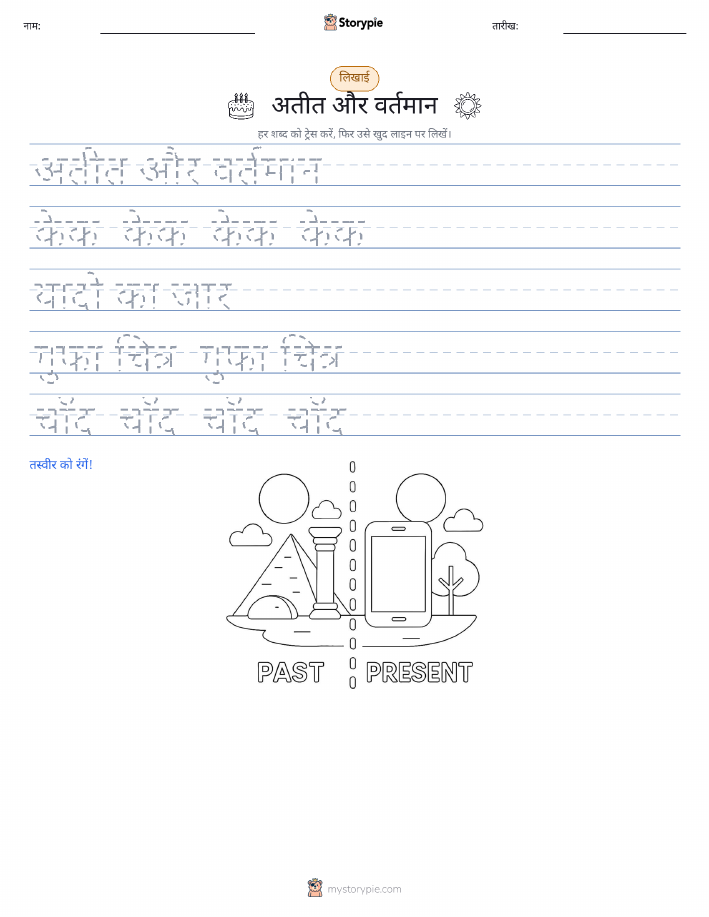 नाम:
Storypie
तारीख:
लिखाई
अतीत और वर्तमान
हर शब्द को ट्रेस करें, फिर उसे खुद लाइन पर लिखें।
अतीत और वर्तमान
केक केक केक केक
यादों का जार
गुफा चित्र गुफा चित्र
चाँद चाँद चाँद चाँद
तस्वीर को रंगें!
PAST PRESENT
mystorypie.com